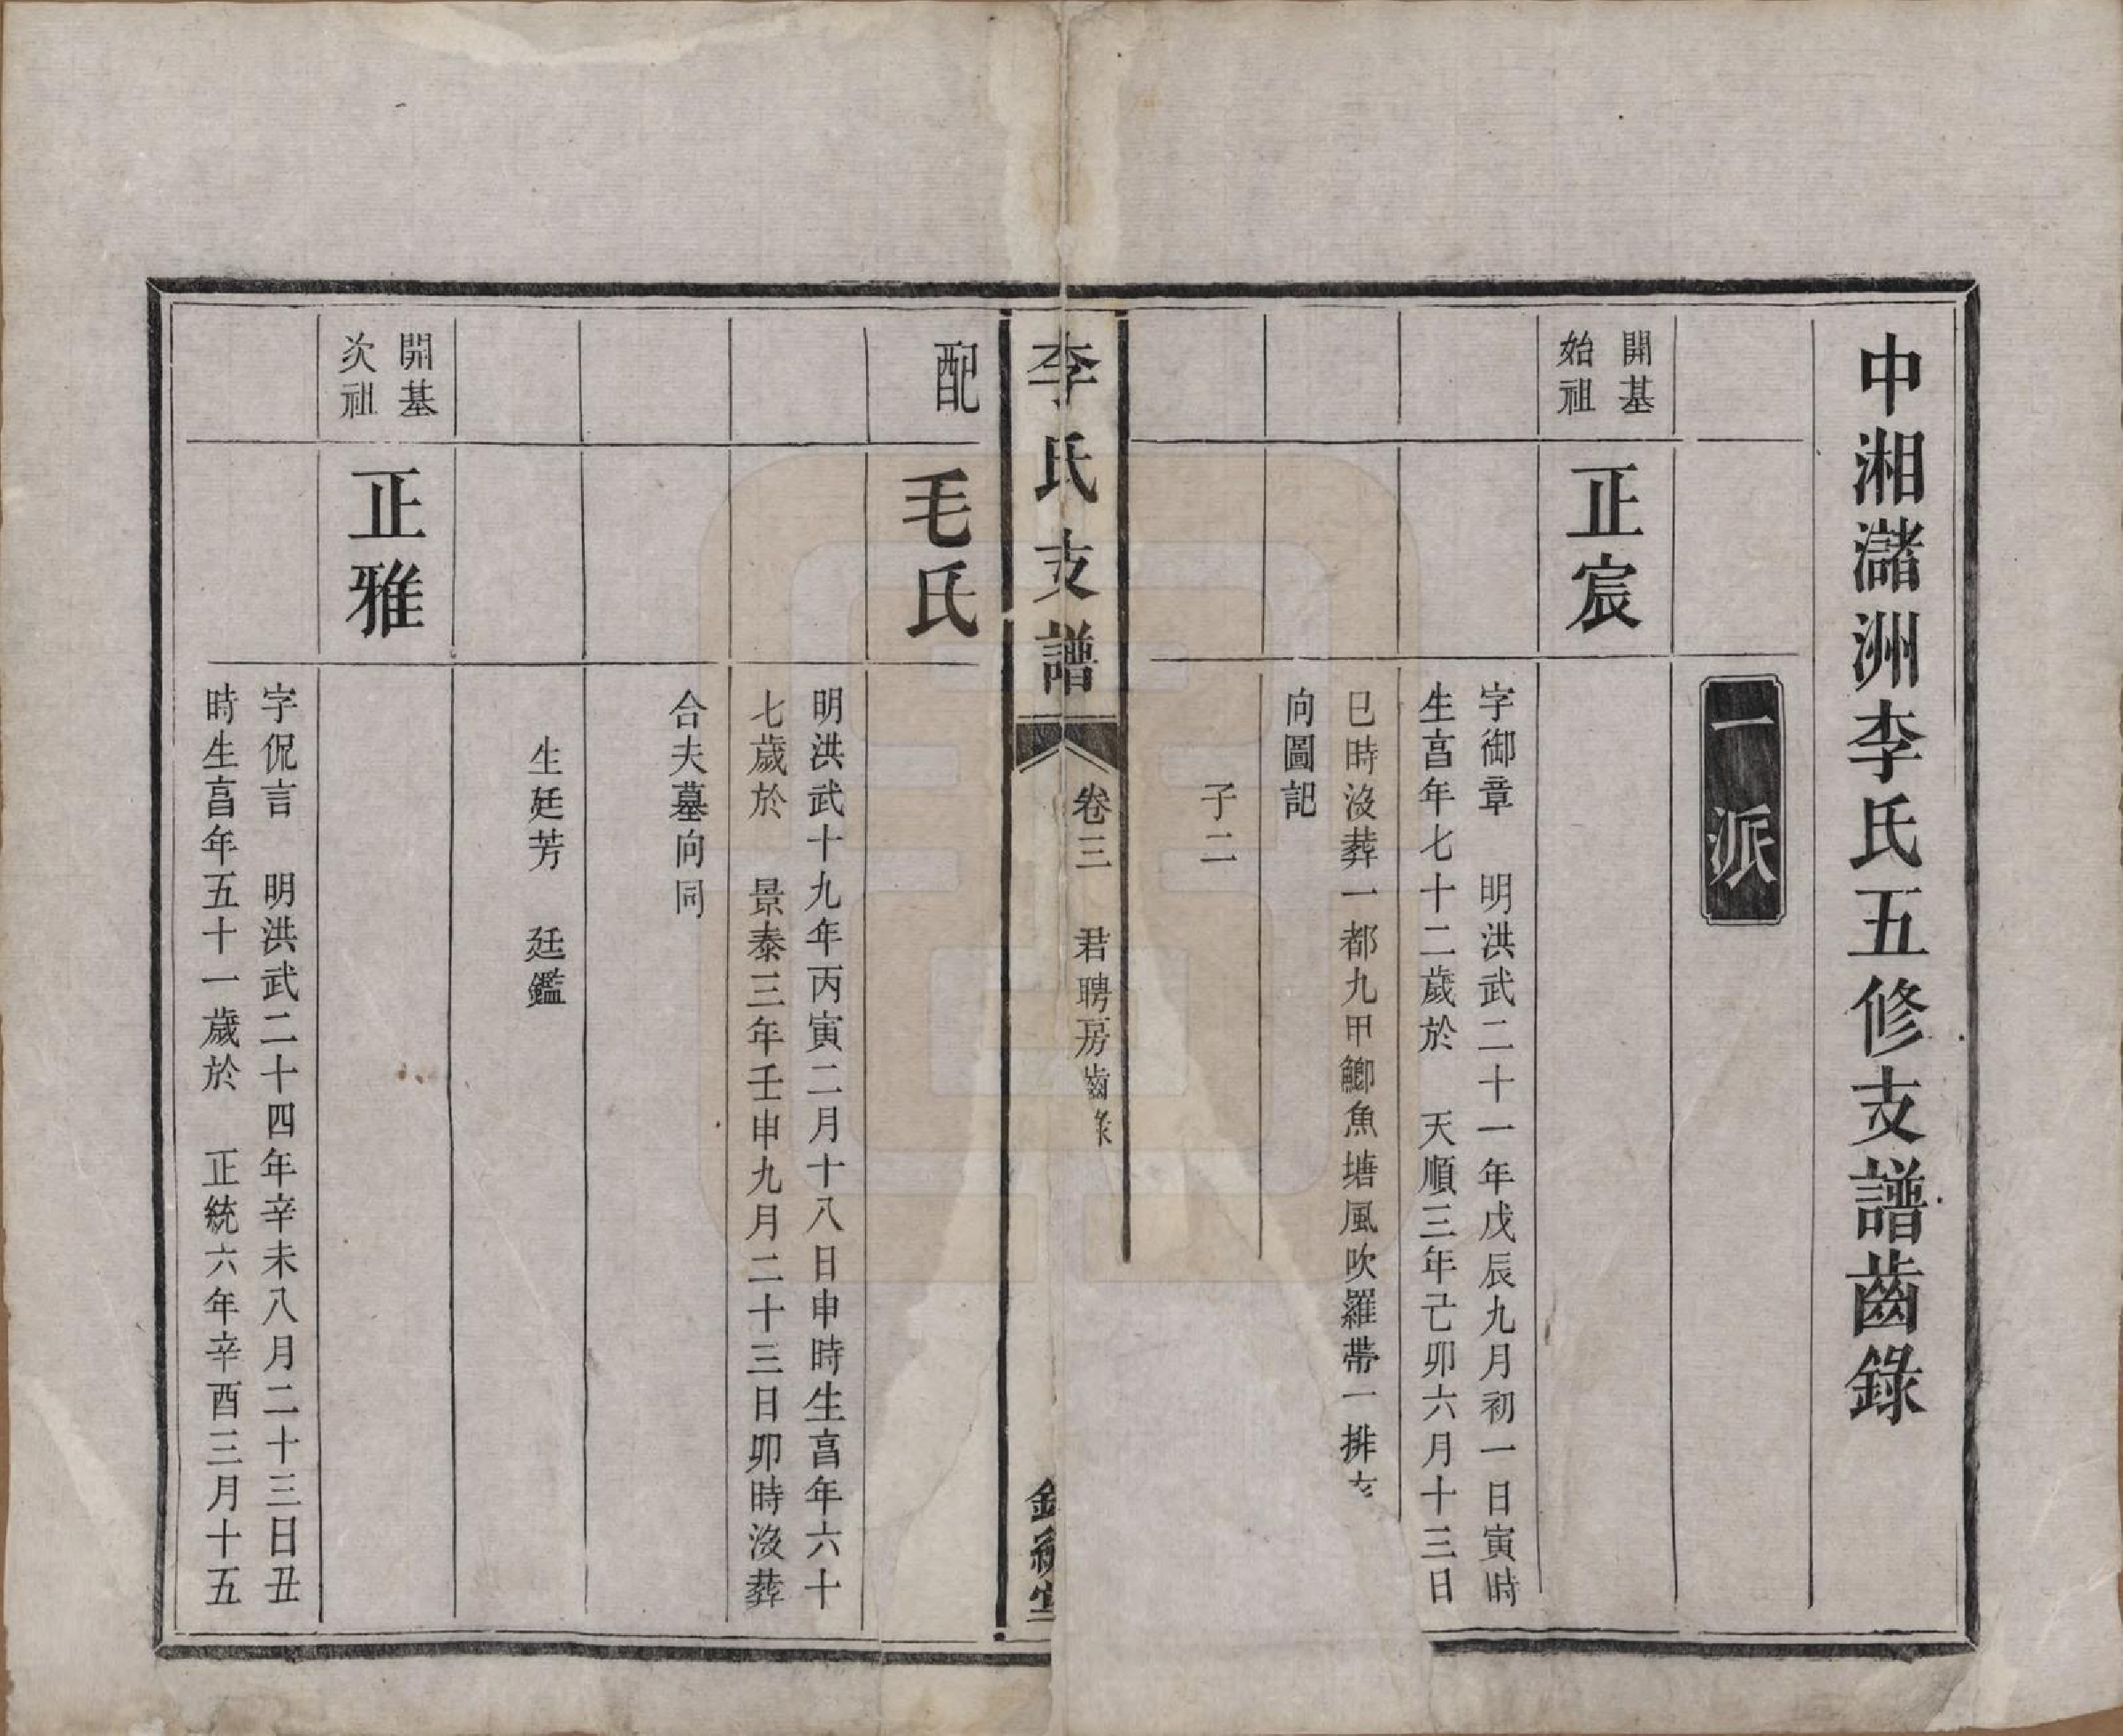 中湘瀦洲李氏五修支譜齒錄
一派
開基
始祖
正宸
字御章 明洪武二十一年戊辰九月初一日寅時
生亯年七十二歲於 天順三年己卯六月十三日
巳時沒葬一都九甲鯽魚塘風吹羅帶一排
向圖記
子二
李氏支譜
卷三 君聘房齒
配
毛氏
明洪武十九年丙寅二月十八日申時生亯年六十
七歲於 景泰三年壬申九月二十三日卯時沒葬
合夫墓向同
生廷芳 廷鑑
開基
次祖
正雅
字侃言 明洪武二十四年辛未八月二十三日丑
時生亯年五十一歲於 正統六年辛酉三月十五